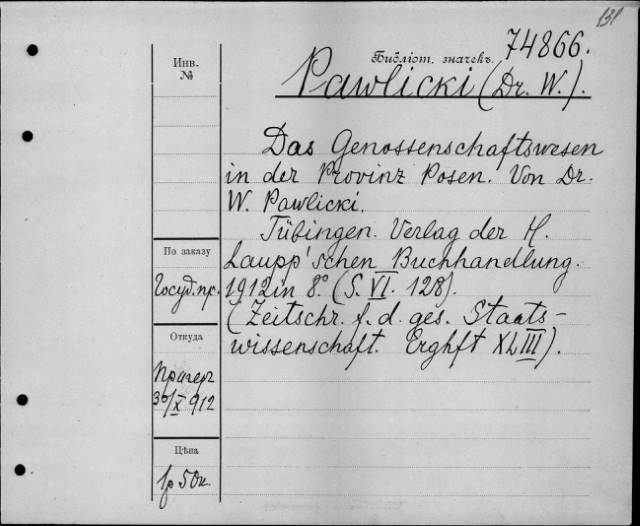 131
Библіот. значекъ. 74866.
Pawlicki (Dr. W.).
Инв.
№
Das Genossenschaftswesen
in der Provinz Posen. Von Dr.
W. Pawlicki.
Tübingen. Verlag der H.
Laupp'schen Buchhandlung.
1912 in 8.° (S. VI. 128).
(Zeitschr. f. d. ges. Staats-
wissenschaft. Erghft XLIII).
По заказу
Госуд. пр.
Откуда
Прагеръ
30/X 912
Цѣна
1р 50к.